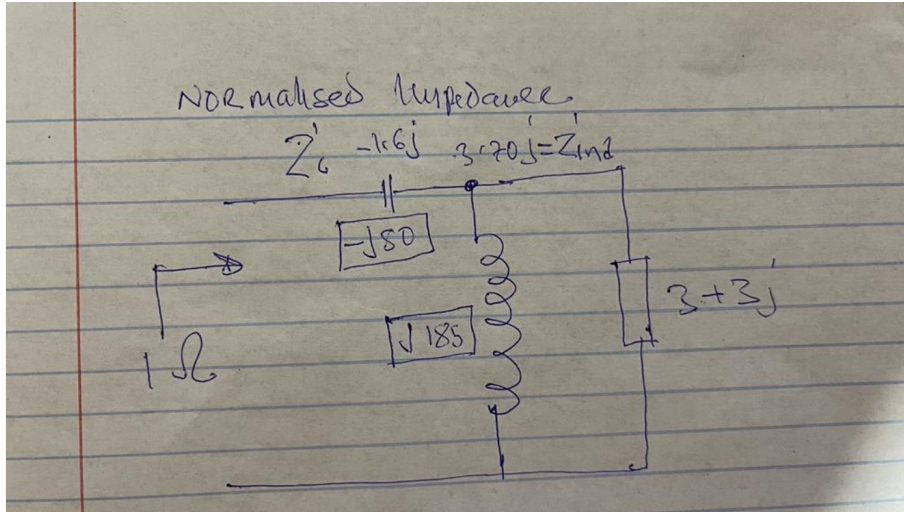 NORMALISED Impedance
Z'c -1.6j 3.70j = Z'ind
-J80
J185
3+3j
1Ω